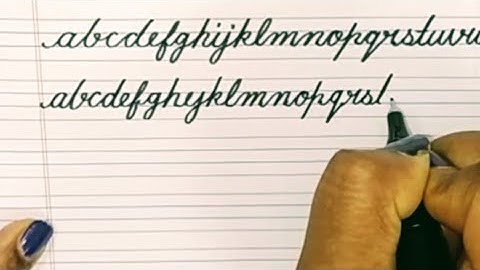 abcdefghijklmnopqrstuv
abcdefghijklmnopqrst